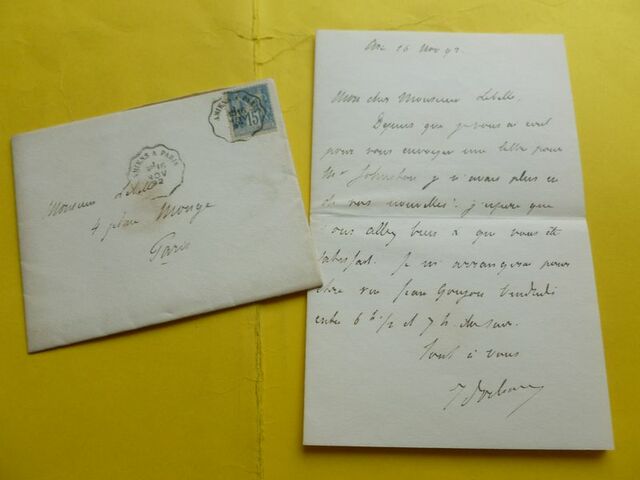 16 Nov 92
Mon cher Monsieur Lebelle.
Depuis que je vous ai écrit
pour vous envoyer une lettre pour
Mr Johnston je n'avais plus eu
de vos nouvelles. j'espère que
vous allez bien & que vous êtes
satisfait. Je m'arrangerai pour
être rue Jean Goujon Vendredi
entre 6 h 1/2 et 7 h. du soir.
Tout à vous
AMIENS A PARIS
15
AMIENS A PARIS
16
NOV
92
Monsieur Lebelle
4 place Monge
Paris